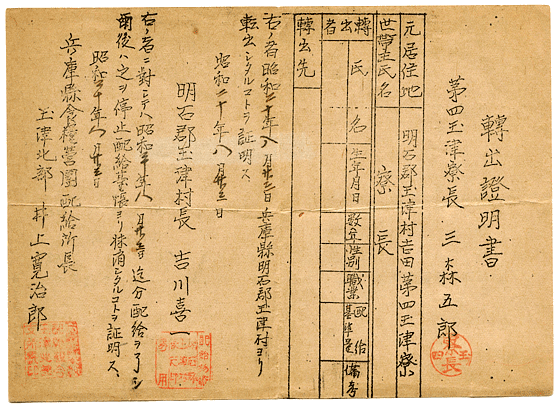 轉出證明書
第四玉津寮長 三森五郎
元居住地 明石郡玉津村吉田 第四玉津寮
世帶主氏名 寮長
轉出者 氏名 生年月日 數年 性別 職業 配給基準量 備考
轉出先
右ノ者昭和二十年八月廿三日兵庫縣明石郡玉津村ヨリ
転出シタルコトヲ証明ス
昭和二十年八月廿三日
明石郡玉津村長 吉川喜一
右ノ者ニ對シテハ昭和二十年八月廿日迄分配給ヲ了シ
爾後ハ之ヲ停止配給臺帳ヨリ抹消シタルコトヲ証明ス
昭和二十年八月廿三日
兵庫縣食糧營團配給所長
玉津北部 井上寛治郎